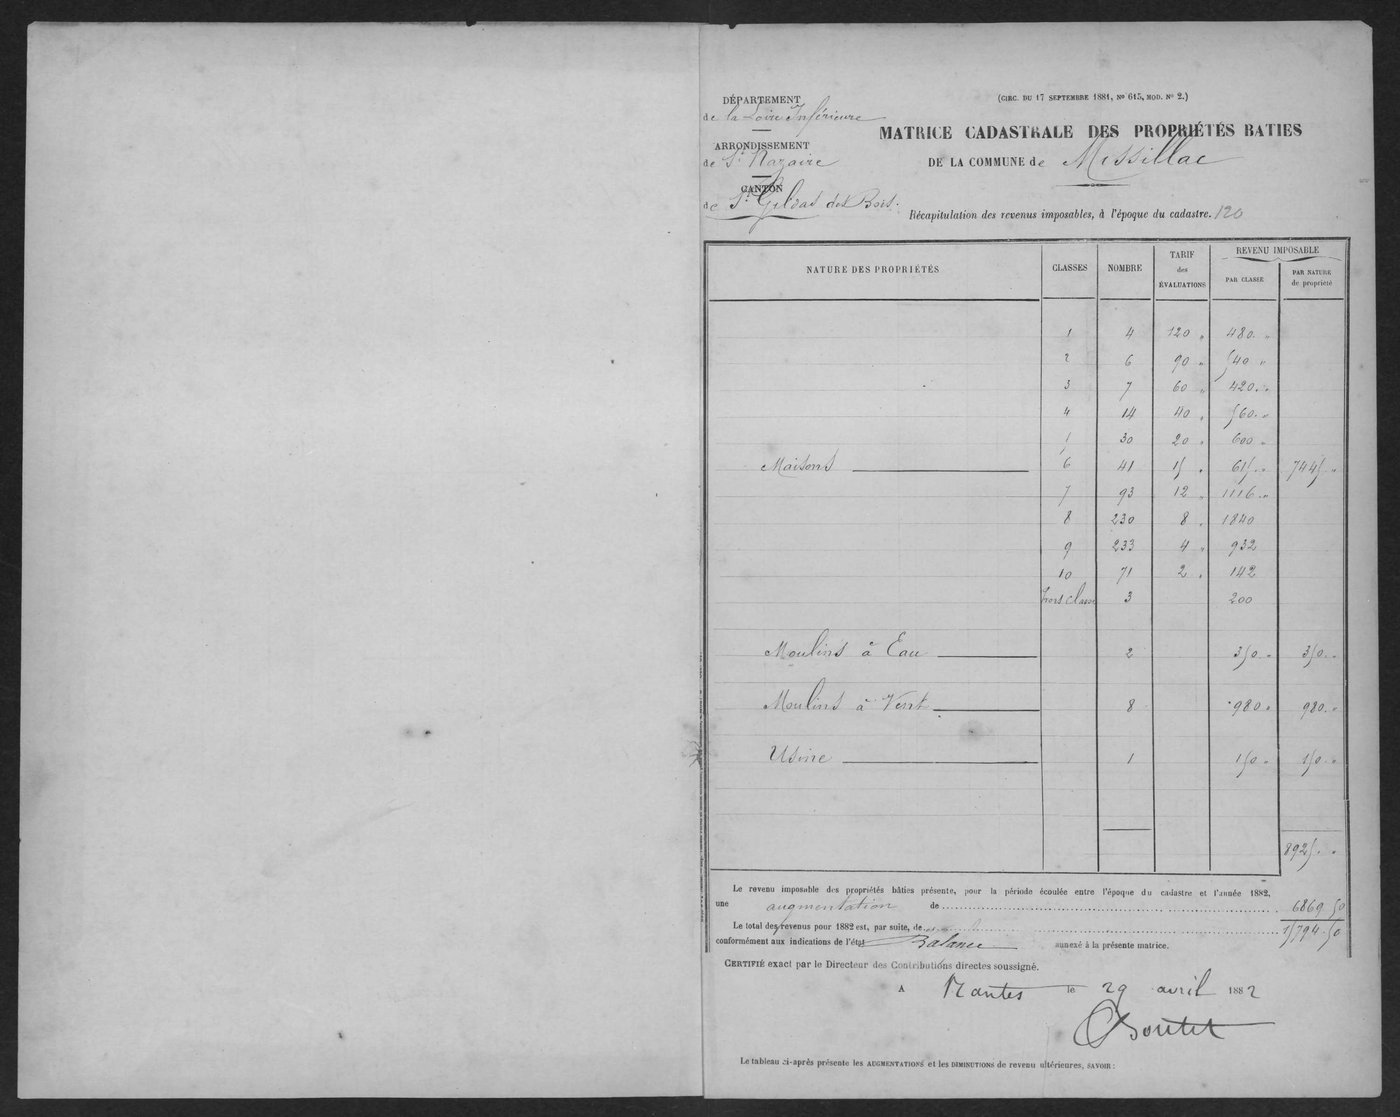 DÉPARTEMENT
de la Loire Inférieure
ARRONDISSEMENT
de St Nazaire
CANTON
de St Gildas des Bois.
(CIRC. DU 17 SEPTEMBRE 1881, No 615, MOD. No 2.)
MATRICE CADASTRALE DES PROPRIÉTÉS BATIES
DE LA COMMUNE de Missillac
Récapitulation des revenus imposables, à l'époque du cadastre. 120
NATURE DES PROPRIÉTÉS CLASSES NOMBRE TARIF des ÉVALUATIONS REVENU IMPOSABLE
PAR CLASSE PAR NATURE de propriété
1 4 120 " 480 "
2 6 90 " 540 "
3 7 60 " 420 "
4 14 40 " 560 "
5 30 20 " 600 "
Maisons 6 41 15 " 615 " 7445 "
7 93 12 " 1116 "
8 230 8 " 1840
9 233 4 " 932
10 71 2 " 142
hors classe 3 200
Moulins à Eau 2 350 " 350 "
Moulins à Vent 8 980 " 980 "
Usine 1 150 " 150 "
8925 "
Le revenu imposable des propriétés bâties présente, pour la période écoulée entre l'époque du cadastre et l'année 1882,
une augmentation de 6869 50
Le total des revenus pour 1882 est, par suite, de 15794.50
conformément aux indications de l'état Balance annexé à la présente matrice.
CERTIFIÉ exact par le Directeur des Contributions directes soussigné.
A Nantes le 29 avril 1882
Boutet
Le tableau ci-après présente les AUGMENTATIONS et les DIMINUTIONS de revenu ultérieures, SAVOIR :